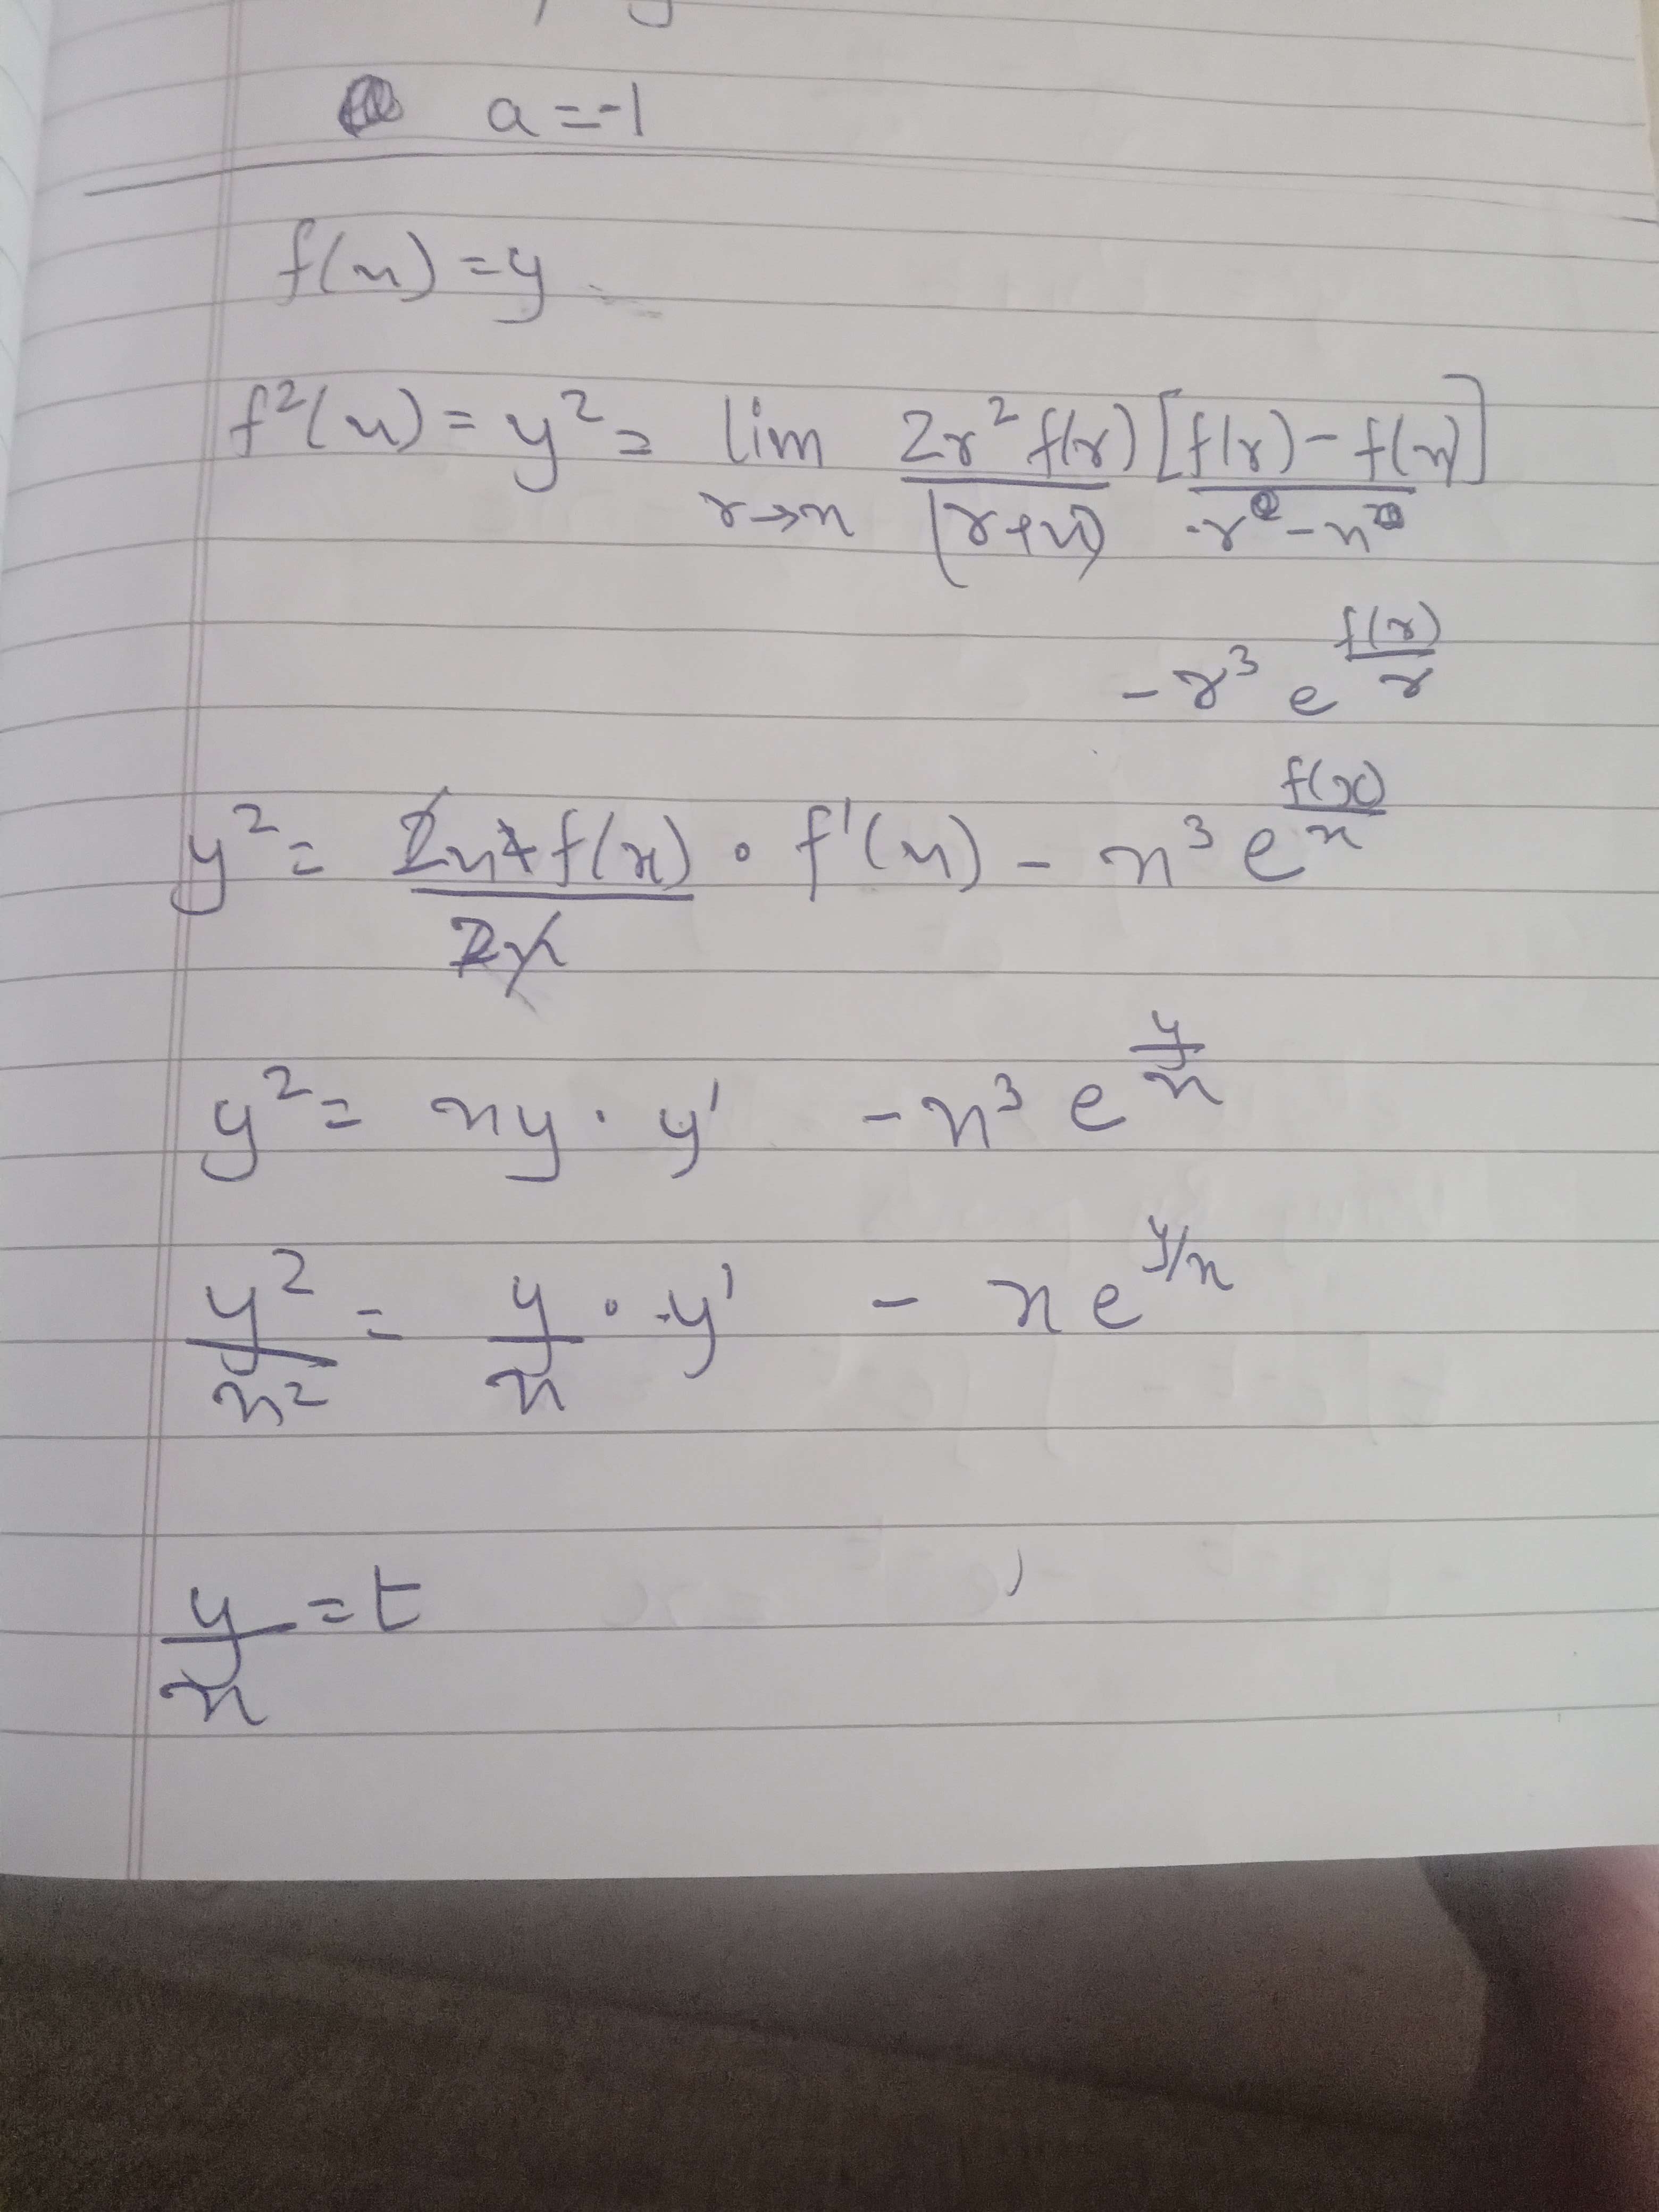 a = -1
f(x) = y
f²(x) = y² = lim r→x 2r² f(r) / (r+x) [f(r) - f(x)] / r - x
- r³ e^(f(r)/r)
y² = 2x² f(x) / 2x · f'(x) - x³ e^(f(x)/x)
y² = xy · y' - x³ e^(y/x)
y²/x² = y/x · y' - x e^(y/x)
y/x = t